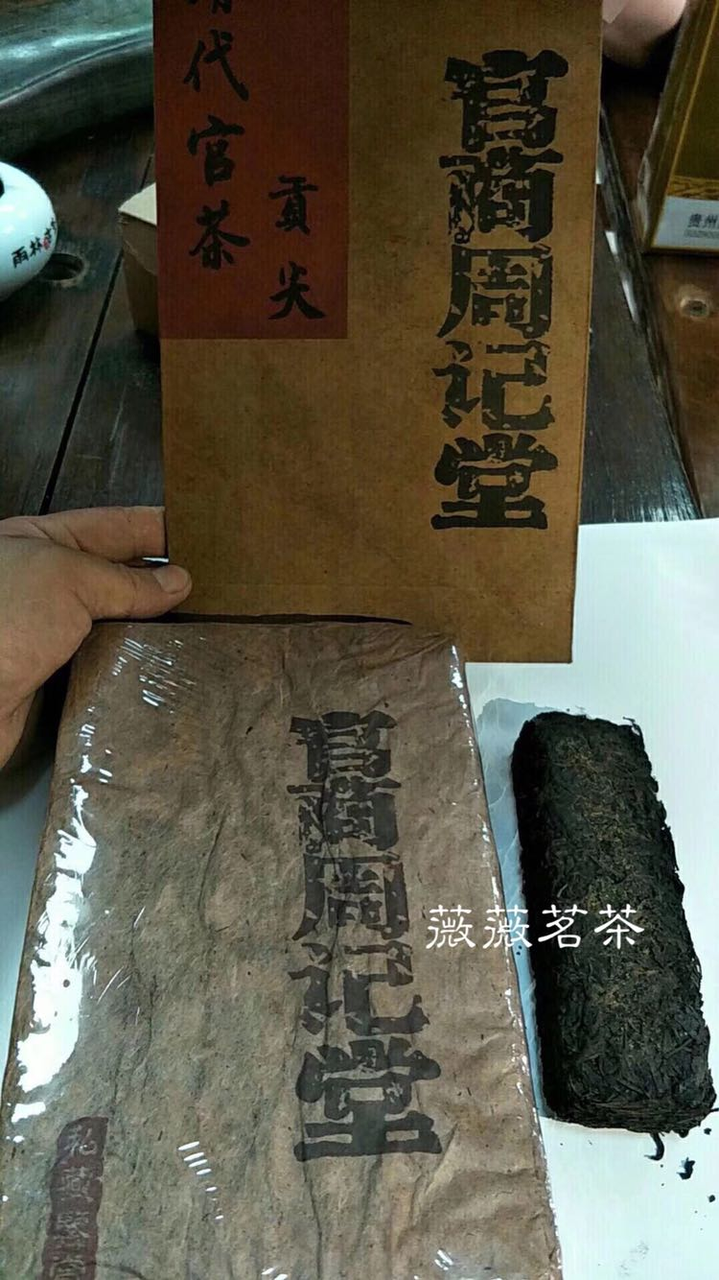 清代官茶
贡尖
官商周记堂
雨林
贵州
官商周记堂
薇薇茗茶
私藏